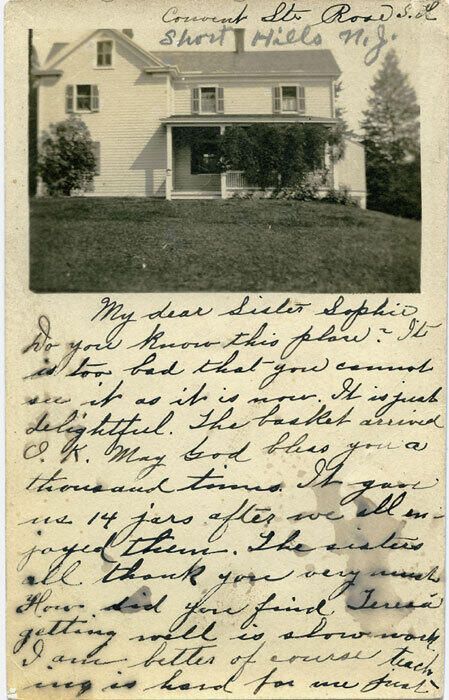 Convent Ste Rose S. H.
Short Hills N.J.
My dear Sister Sophie
Do you know this place? It
is too bad that you cannot
see it as it is now. It is just
delightful. The basket arrived
O. K. May God bless you a
thousand times. It gave
us 14 jars after we all en-
joyed them. The sisters
all thank you very much
How did you find Teresa
getting well is slow work,
I am better of course teach
ing is hard for me just